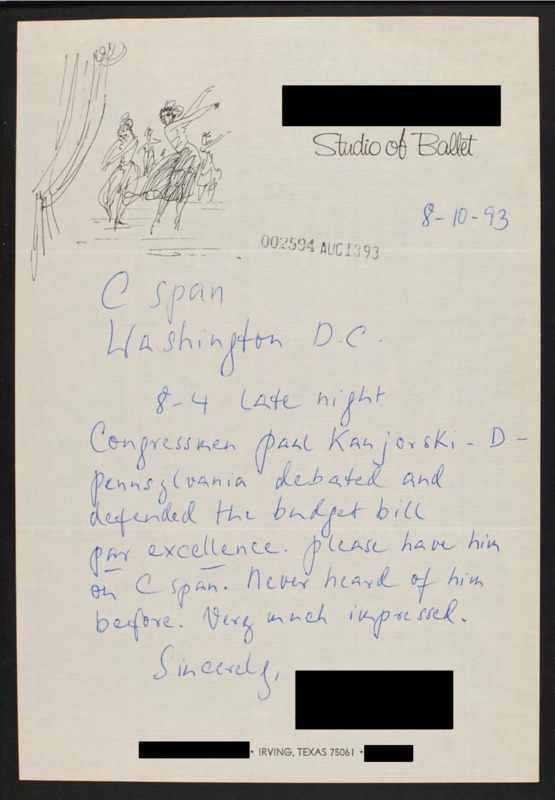 Studio of Ballet
8-10-93
002594 AUG1393
C span
Washington D.C.
8-4 Late night
Congressmen paul Kanjorski - D -
pennsylvania debated and
defended the budget bill
par excellence. please have him
on C span. Never heard of him
before. Very much impressed.
Sincerely,
• IRVING, TEXAS 75061 •